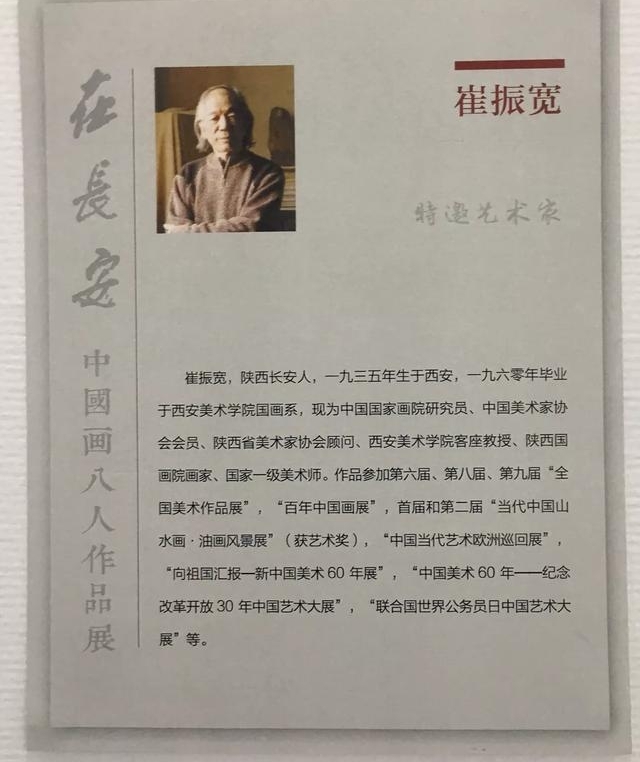 在長安
中國画八人作品展
崔振宽
特邀艺术家
崔振宽，陕西长安人，一九三五年生于西安，一九六零年毕业
于西安美术学院国画系，现为中国国家画院研究员、中国美术家协
会会员、陕西省美术家协会顾问、西安美术学院客座教授、陕西国
画院画家、国家一级美术师。作品参加第六届、第八届、第九届“全
国美术作品展”，“百年中国画展”，首届和第二届“当代中国山
水画·油画风景展”（获艺术奖），“中国当代艺术欧洲巡回展”，
“向祖国汇报—新中国美术60年展”，“中国美术60年——纪念
改革开放30年中国艺术大展”，“联合国世界公务员日中国艺术大
展”等。